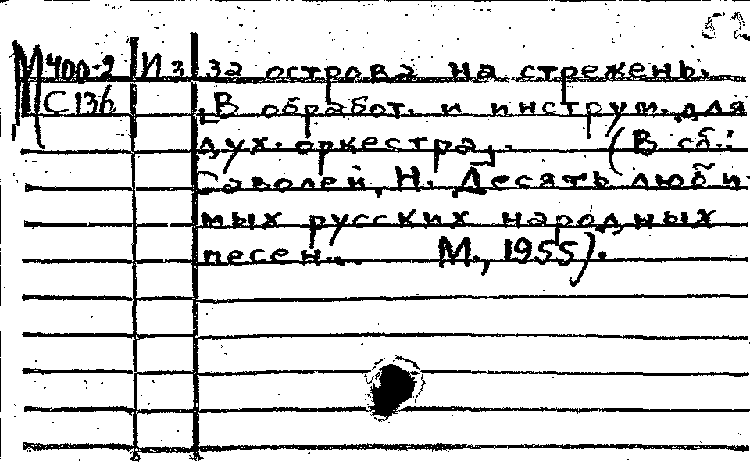 52
М400-2 И 3 Из острова на стрежень.
С136 [В обработ. и инструм. для
дух. оркестра]. (В сб.:
Саволей, Н. Десять люби-
мых русских народных
песен... М., 1955).